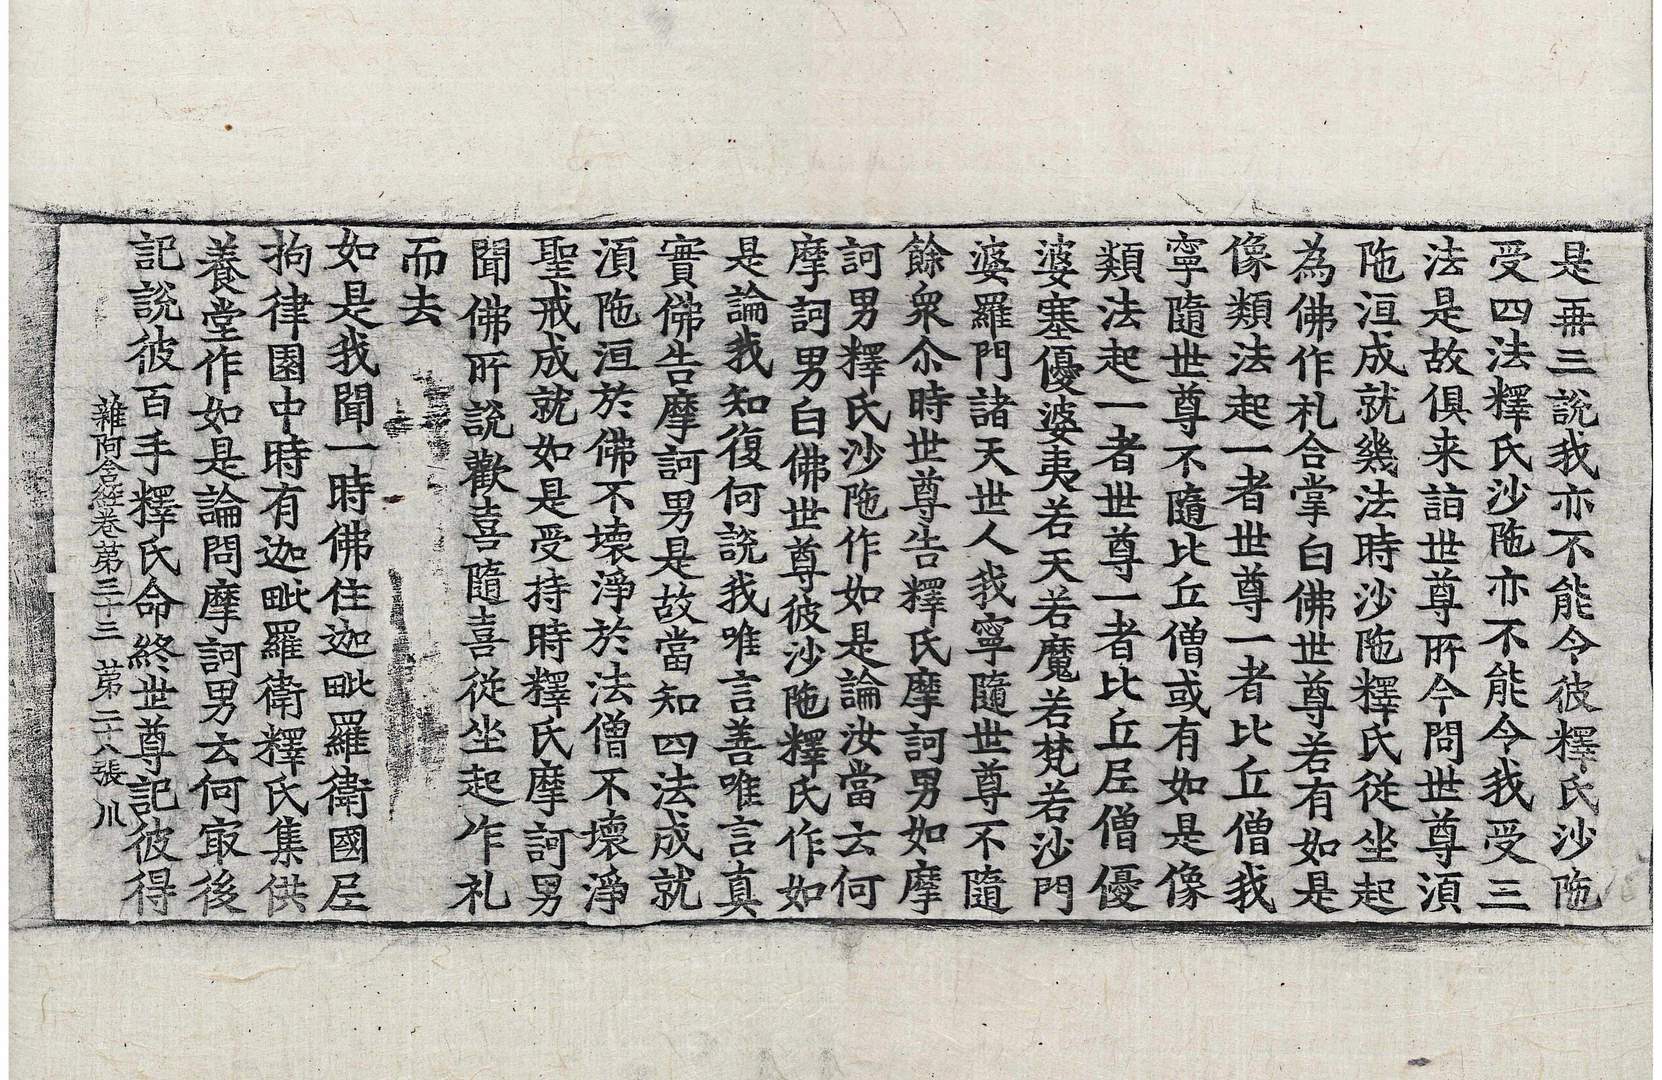 是再三說我亦不能令彼釋氏沙陁
受四法釋氏沙陁亦不能令我受三
法是故俱来詣世尊所今問世尊湏
陁洹成就幾法時沙陁釋氏從坐起
為佛作礼合掌白佛世尊若有如是
像類法起一者世尊一者比丘僧我
寧隨世尊不隨比丘僧或有如是像
類法起一者世尊一者比丘尼僧優
婆塞優婆夷若天若魔若梵若沙門
婆羅門諸天世人我寧隨世尊不隨
餘衆尒時世尊告釋氏摩訶男如摩
訶男釋氏沙陁作如是論汝當云何
摩訶男白佛世尊彼沙陁釋氏作如
是論我知復何說我唯言善唯言真
實佛告摩訶男是故當知四法成就
湏陁洹於佛不壞淨於法僧不壞淨
聖戒成就如是受持時釋氏摩訶男
聞佛所說歡喜隨喜從坐起作礼
而去
如是我聞一時佛住迦毗羅衛國尼
拘律園中時有迦毗羅衛釋氏集供
養堂作如是論問摩訶男云何冣後
記說彼百手釋氏命終世尊記彼得
雜阿含經卷第三十三 第二十八張 川